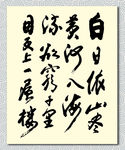 白日依山尽
黄河入海
流欲窮千里
目更上一層樓